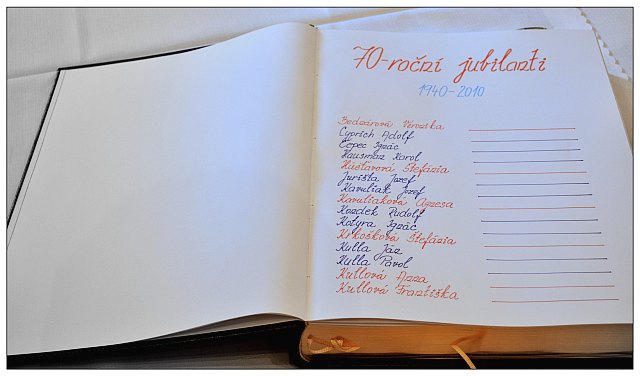 70-roční jubilanti
1940-2010
Bednárová Veronika
Cyprich Adolf
Čepec Ignác
Hausman Karol
Hústavová Štefánia
Jurišta Jozef
Kavuliak Jozef
Kavuliaková Agnesa
Kozdek Rudolf
Kotyra Ignác
Krkošková Štefánia
Kulla Ján
Kulla Pavol
Kullová Anna
Kullová Františka